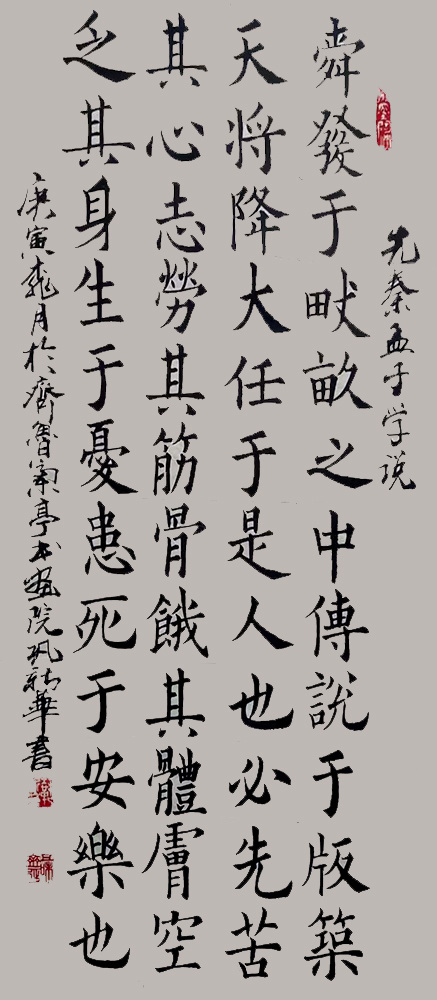 先秦孟子学说
舜發于畎畝之中傅說于版築
天將降大任于是人也必先苦
其心志勞其筋骨餓其體膚空
乏其身生于憂患死于安樂也
庚寅月於齊魯蘭亭书画院新華書